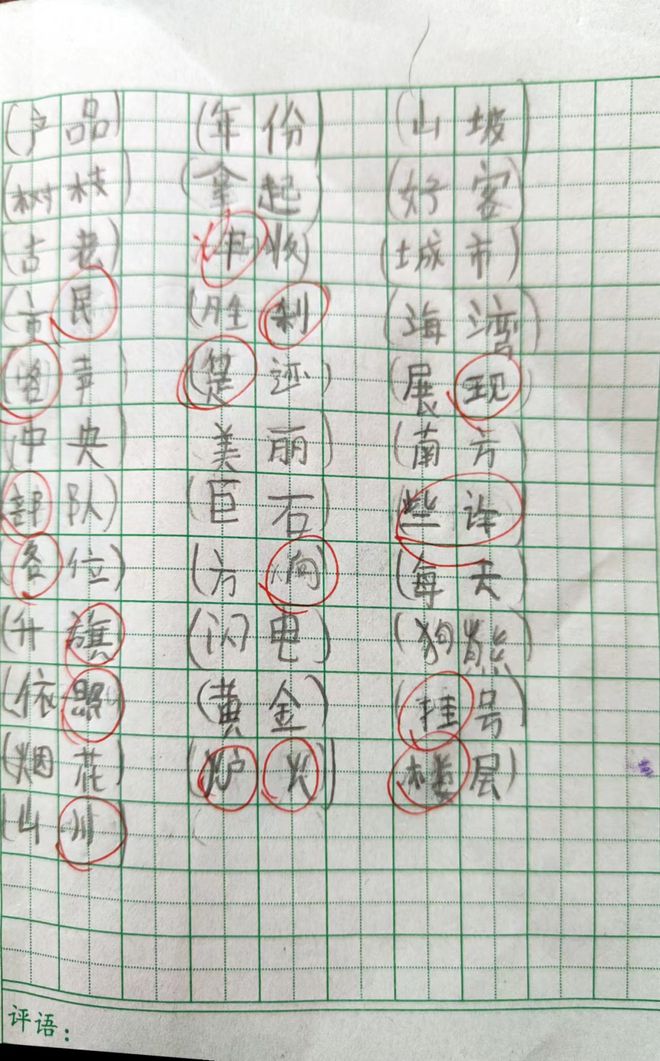 (产品) (年份) (山坡)
(树枝) (拿起) (好客)
(古老) 收) (城市)
(京民 (胜利) (海湾)
声) (楚迹) (展现)
(中央 美丽 (南方
部队) (巨石) 些许
(各位) (方向 (每天
(升旗 (闪电) (狗熊
(依照 (黄金) (挂号
(烟花) (炉火) 楼层)
(山川)
评语: